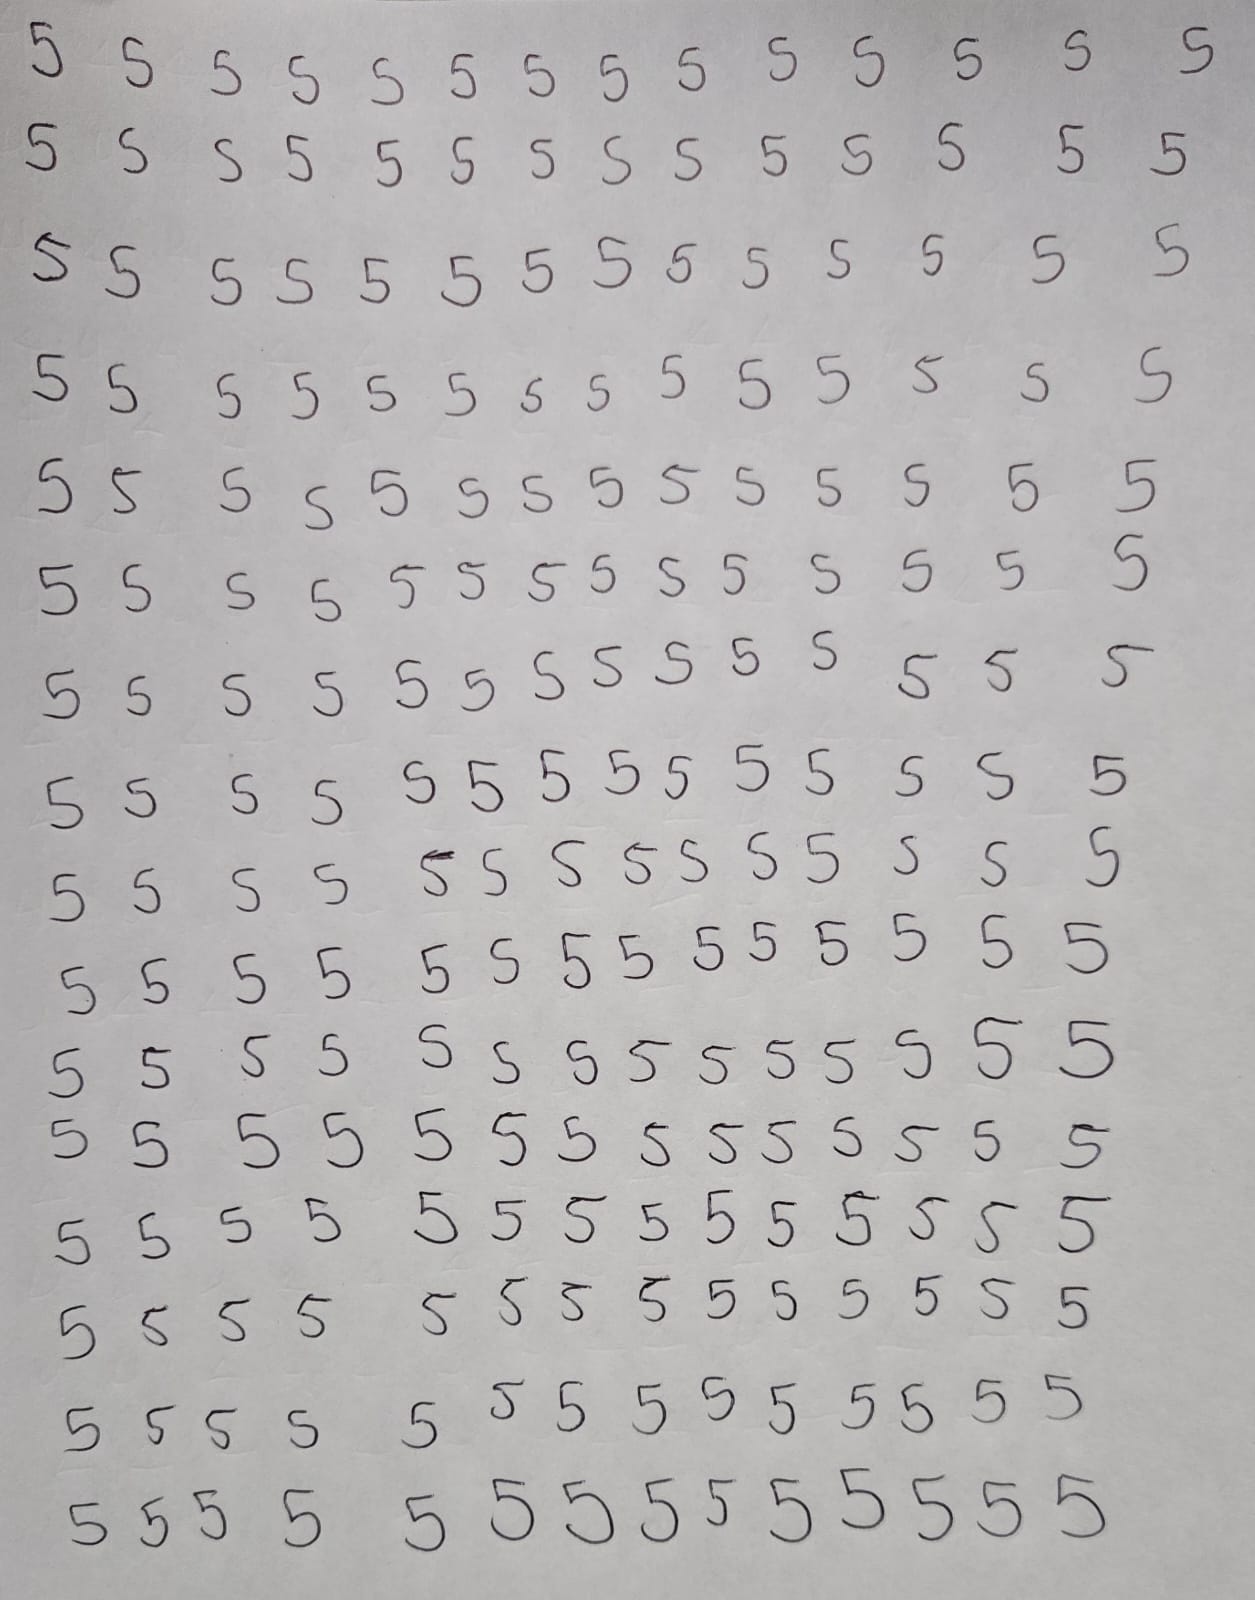 5 5 5 5 5 5 5 5 5 5 5 5 5 5
5 5 5 5 5 5 5 5 5 5 5 5 5 5
5 5 5 5 5 5 5 5 5 5 5 5 5 5
5 5 5 5 5 5 5 5 5 5 5 5 5 5
5 5 5 5 5 5 5 5 5 5 5 5 5 5
5 5 5 5 5 5 5 5 5 5 5 5 5 5
5 5 5 5 5 5 5 5 5 5 5 5 5 5
5 5 5 5 5 5 5 5 5 5 5 5 5 5
5 5 5 5 5 5 5 5 5 5 5 5 5 5
5 5 5 5 5 5 5 5 5 5 5 5 5 5
5 5 5 5 5 5 5 5 5 5 5 5 5 5
5 5 5 5 5 5 5 5 5 5 5 5 5 5
5 5 5 5 5 5 5 5 5 5 5 5 5 5
5 5 5 5 5 5 5 5 5 5 5 5 5 5
5 5 5 5 5 5 5 5 5 5 5 5 5 5
5 5 5 5 5 5 5 5 5 5 5 5 5 5